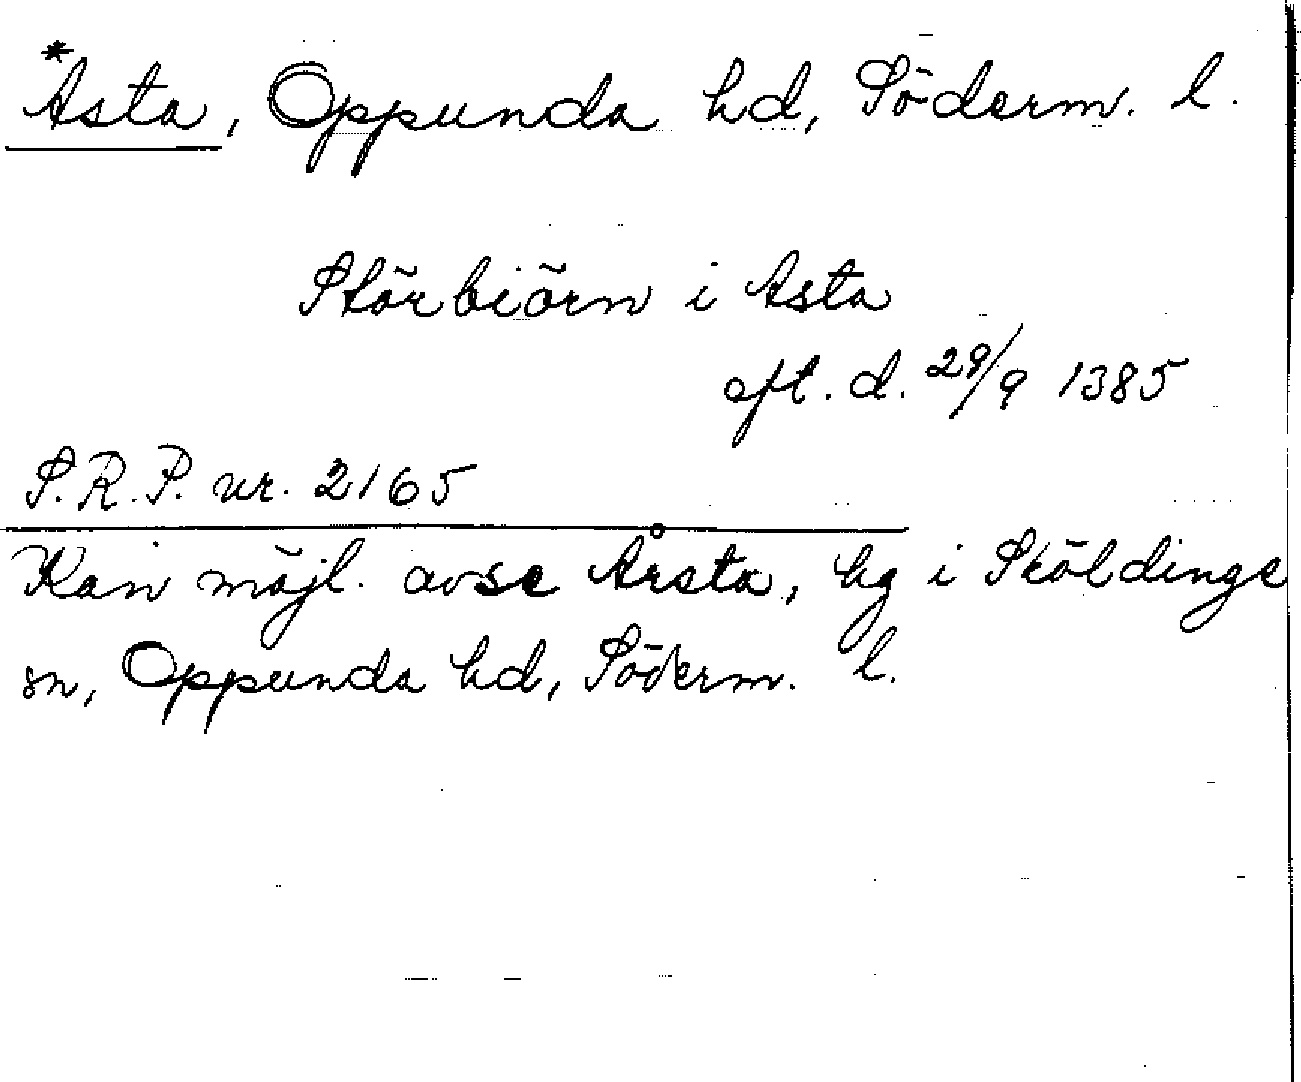 *Asta, Oppunda hd, Söderm. l.
Störbiörn i Asta
eft. d. 29/9 1385
S.R.P. nr. 2165
Kan möjl. avse Årsta, hg i Sköldinge
sn, Oppunda hd, Söderm. l.